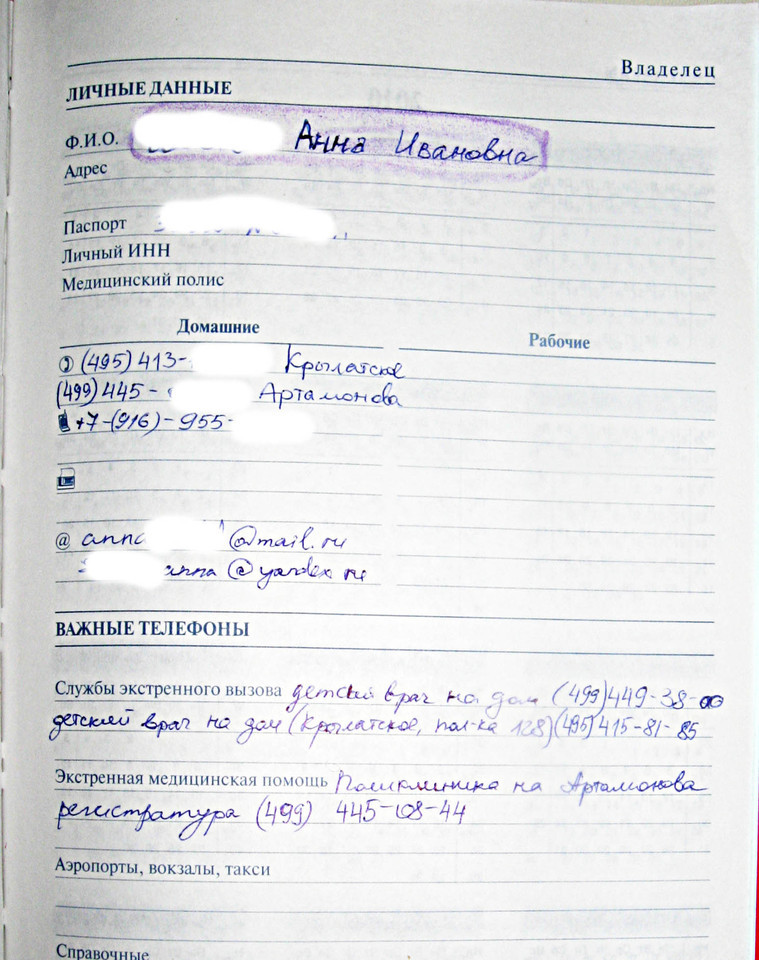 Владелец
ЛИЧНЫЕ ДАННЫЕ
Ф.И.О. Анна Ивановна
Адрес
Паспорт
Личный ИНН
Медицинский полис
Домашние
Рабочие
(495) 413- Крылатское
(499) 445- Артамонова
+7-(916)-955-
@ anna @mail.ru
anna @yandex.ru
ВАЖНЫЕ ТЕЛЕФОНЫ
Службы экстренного вызова детский врач на дом (499)449-38-00
детский врач на дом (Крылатское, пол-ка 128)(495)415-81-85
Экстренная медицинская помощь Поликлиника на Артамонова
регистратура (499) 445-08-44
Аэропорты, вокзалы, такси
Справочные